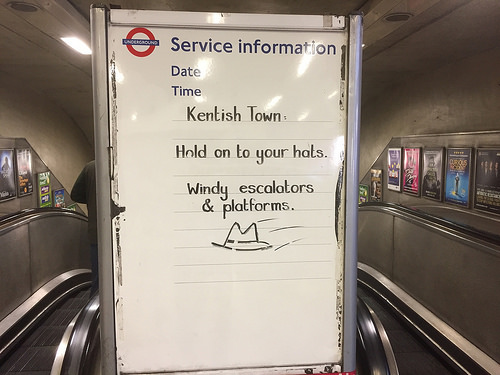 UNDERGROUND
Service information
Date
Time
Kentish Town:
Hold on to your hats.
Windy escalators
& platforms.